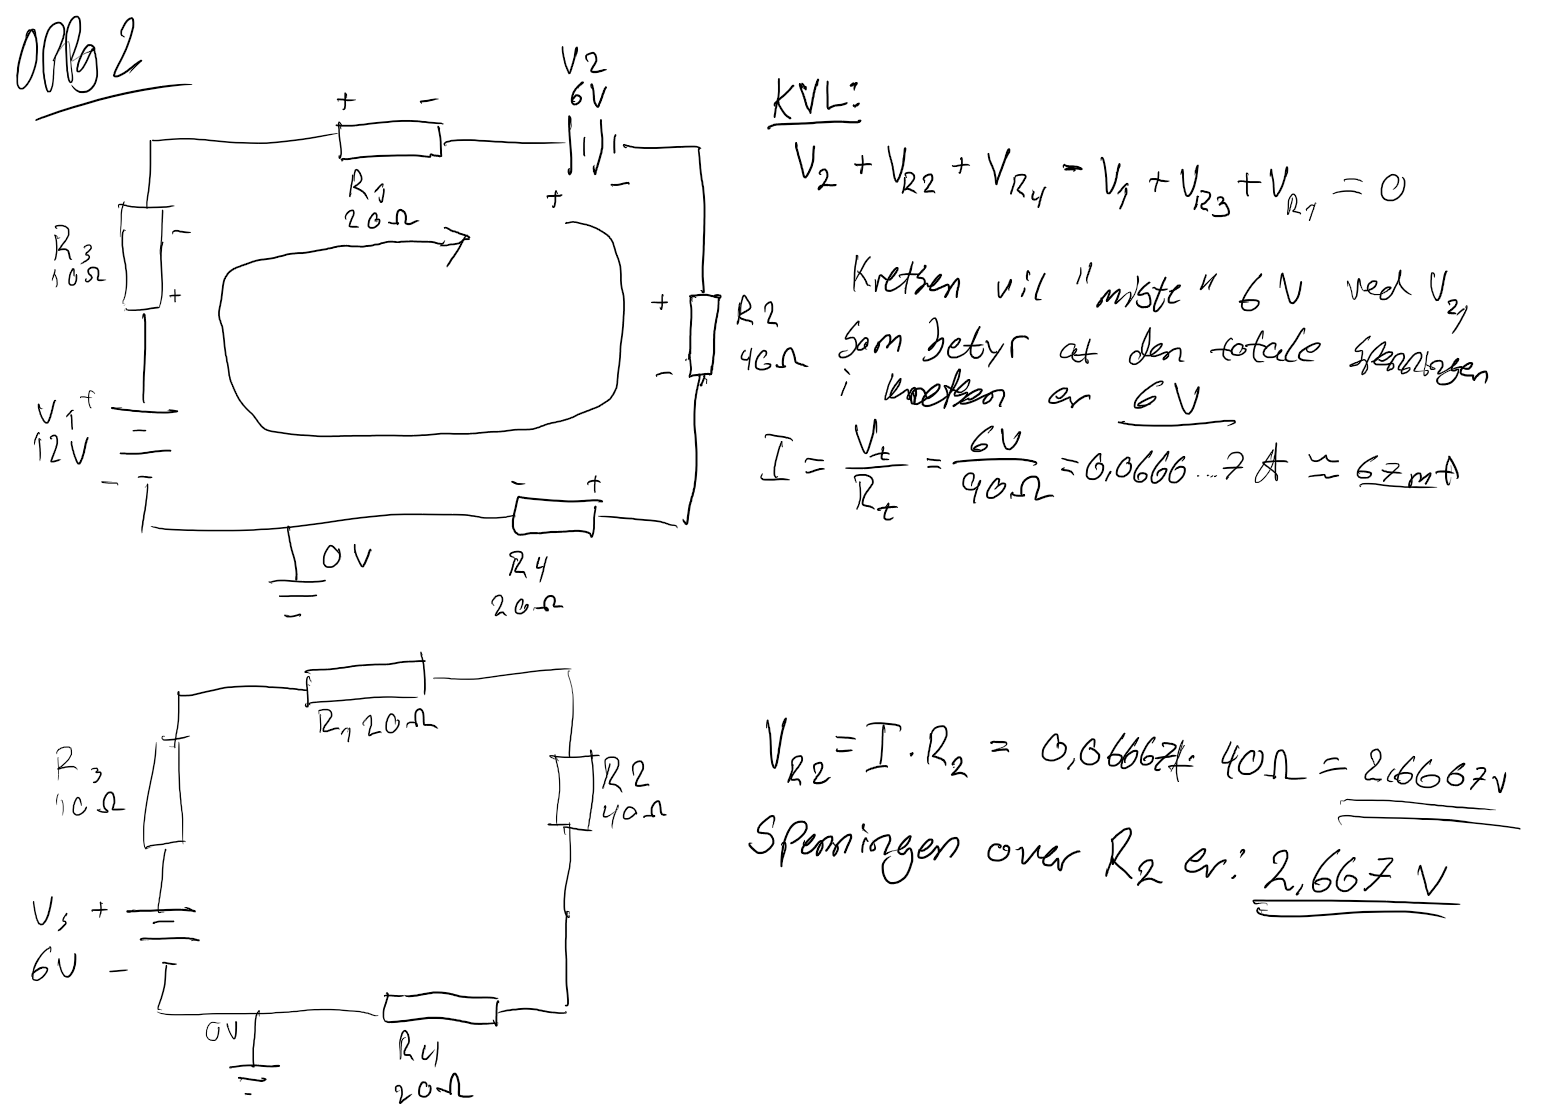 OPPg 2
V2
6V
+ -
R1
20Ω
+ -
R3
10Ω
-
+
+
R2
40Ω
-
V1 +
12V
-
- +
R4
20Ω
0V
KVL:
V2 + VR2 + VR4 - V1 + VR3 + VR1 = 0
Kretsen vil "miste" 6V ved V2,
som betyr at den totale spenningen
i kretsen er 6V
I = Vt/Rt = 6V/90Ω = 0,0666...7 A ≈ 67mA
R1 20Ω
R3
10Ω
R2
40Ω
Vs +
6V -
0V
R4
20Ω
VR2 = I · R2 = 0,06667A · 40Ω = 2,6667V
Spenningen over R2 er: 2,667 V